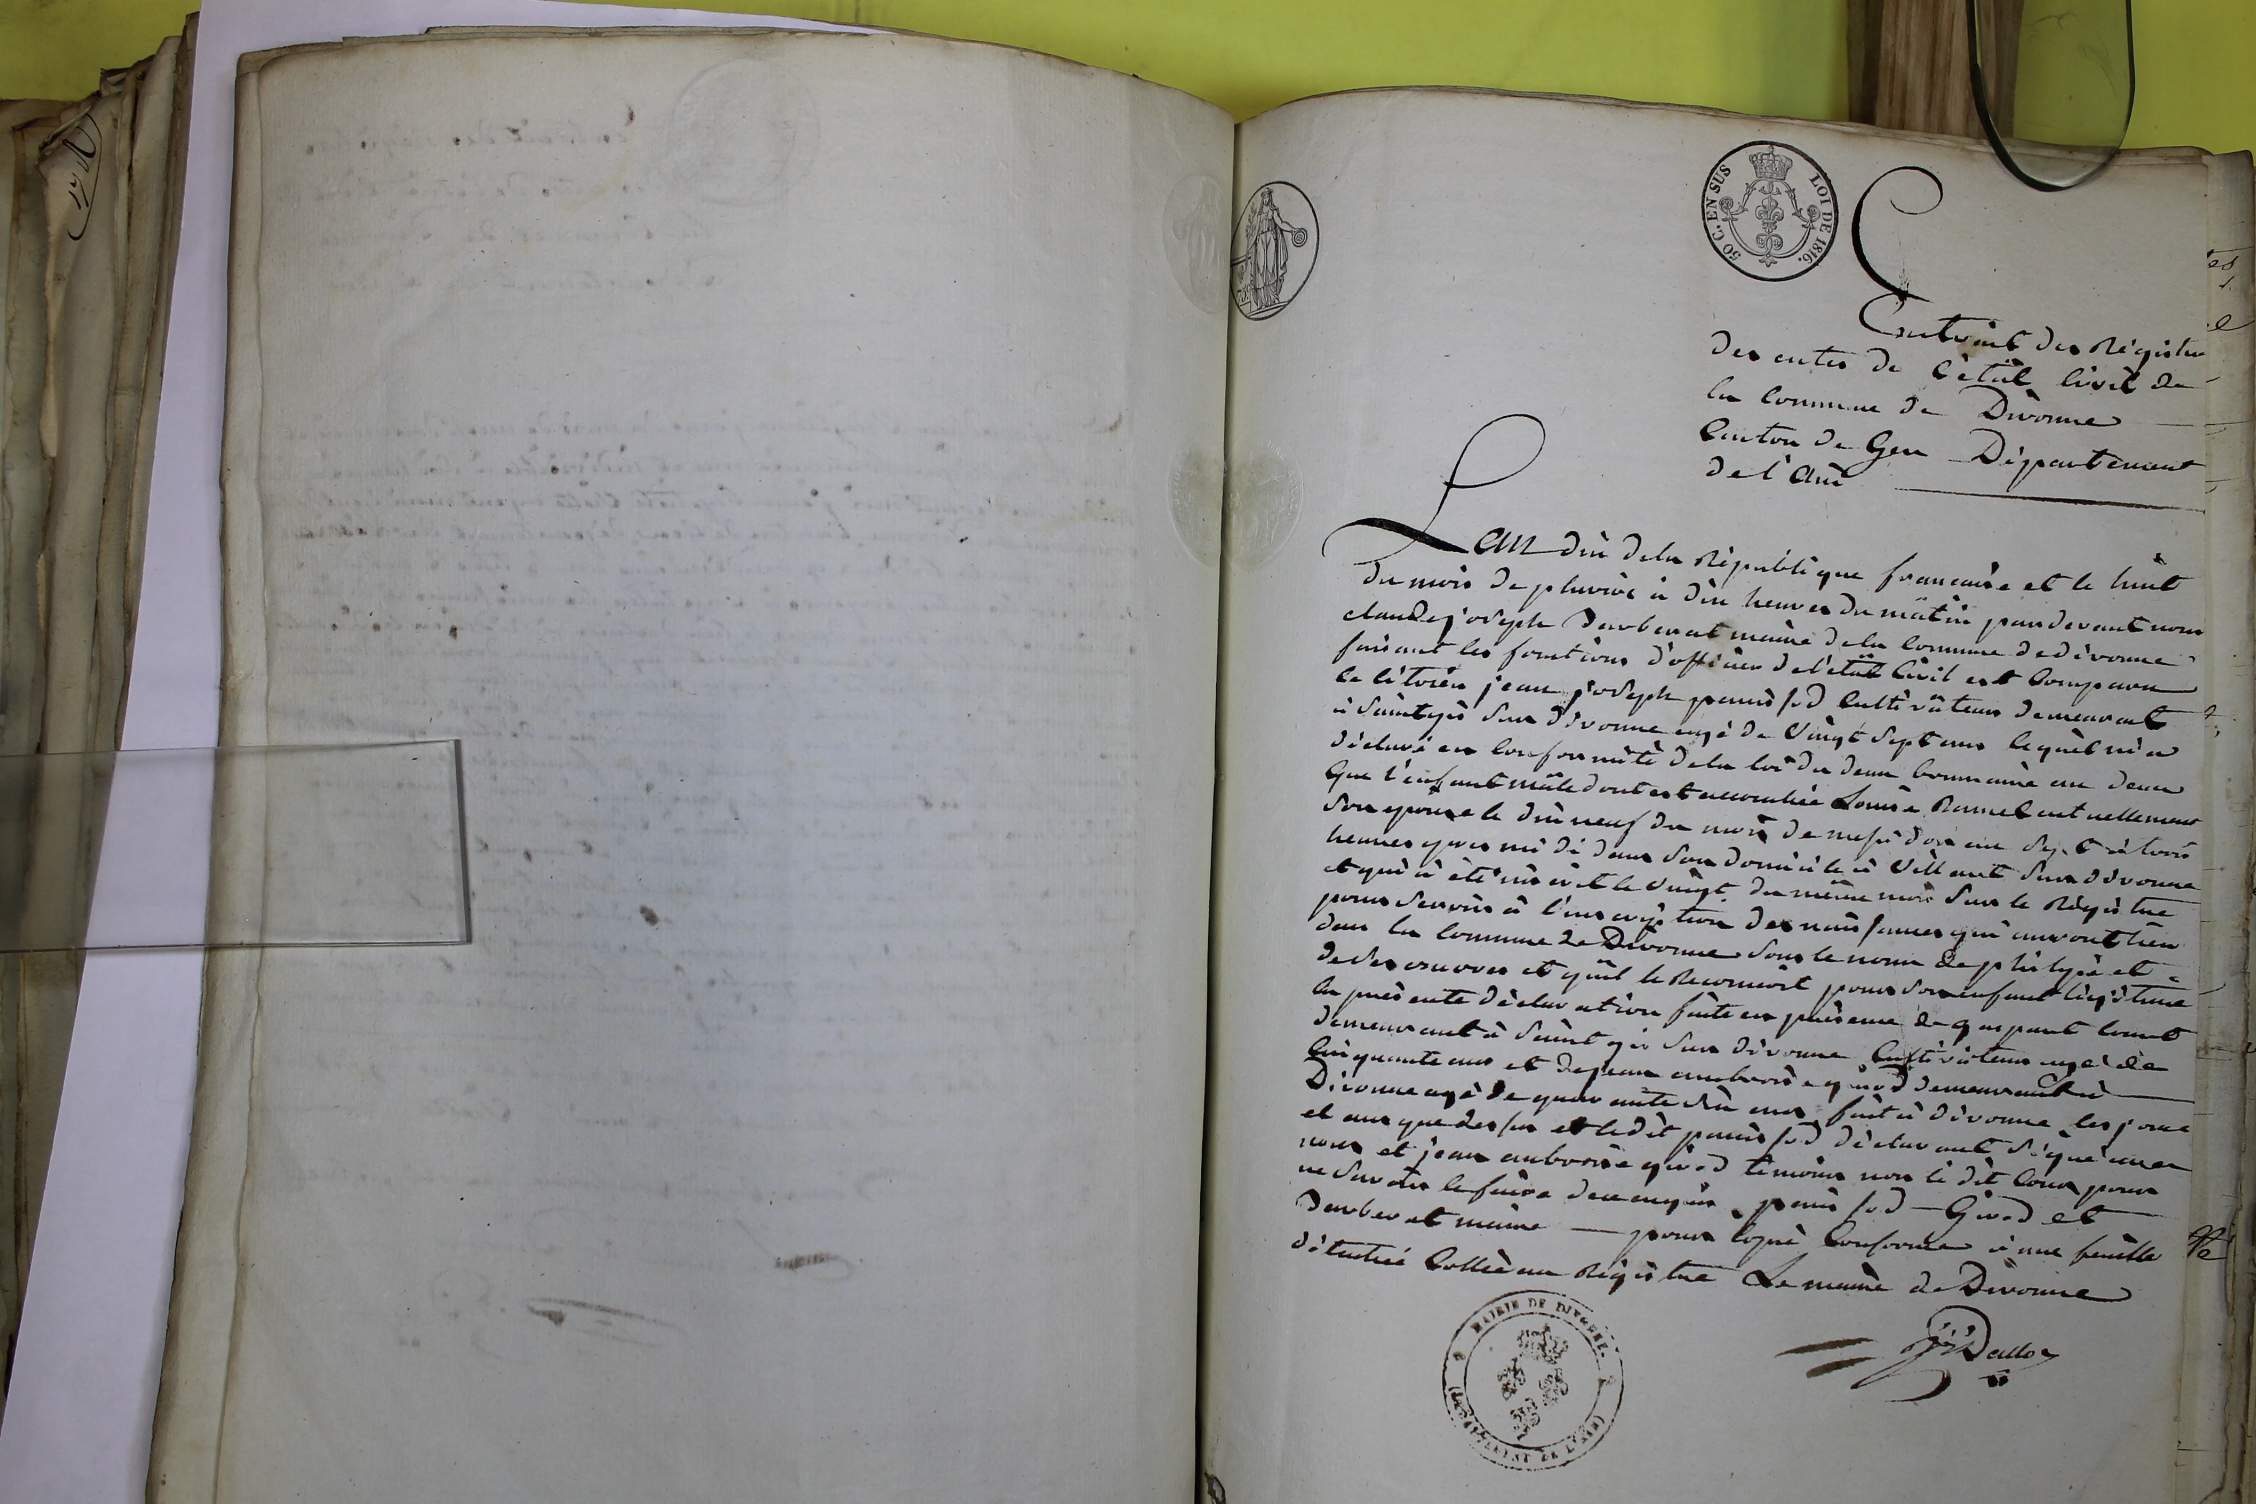 50 C. EN SUS LOI DE 1816.
Extrait des Régistre
des actes de l'état Civil de
la Commune de Divonne
Canton de Gex Département
de l'Ain
L'an dix de la République francaise et le huit
du mois de pluviose à dix heures du matin pardevant nous
claude joseph Darberat maire de la Commune de divonne
faisant les fonctions d'officier de l'état Civil est Comparu
le Citoien jean joseph panissod Cultivateur demeurant
à Saint gis Sur divonne agé de Vingt Sept ans lequel m'a
déclaré en Conformité de la loi du deux brumaire an deux
que l'enfant mâle dont est accouchée Louise Ramel actuellement
Son epouse le dix neuf du mois de messidor an Sept à trois
heures apres midi dans Son domicile à Villard Sur divonne
et qui à été inscrit le Vingt du même mois Sur le Régistre
pour Servir à l'inscription des naissances qui auront lieu
dans la Commune de Divonne Sous le nom de philipe et
de Ses œuvres et qu'il le Reconnoit pour Son enfant légitime
la présente déclaration faite en présence de gaspard
demeurant à Saint gis Sur divonne Cultivateur agé de
Cinquante ans et de jean ambroise girod demeurant à
Divonne agé de quarante Six ans fait à divonne les jour
et an que dessus et le dit panissod déclarant Signé avec
nous et jean ambroise girod témoins non le dit pour
ne Savoir le faire de ce enquis panissod — Girod et
Darberat maire — pour Copie Conforme à une feuille
détachée Collée au Régistre Le maire de Divonne
MAIRIE DE DIVONNE
(DÉPARTEMENT DE L'AIN)